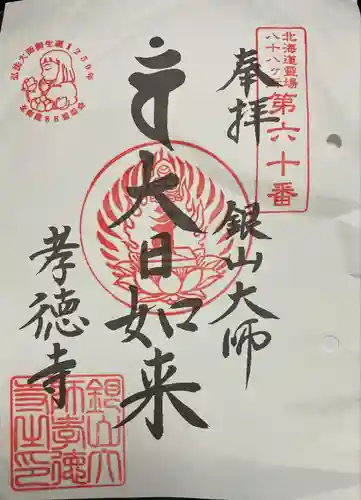 北海道霊場
八十八ヶ所
第六十番
奉拝
銀山大師
大日如来
孝徳寺
弘法大師御生誕1250年
銀山大
師孝徳
寺之印